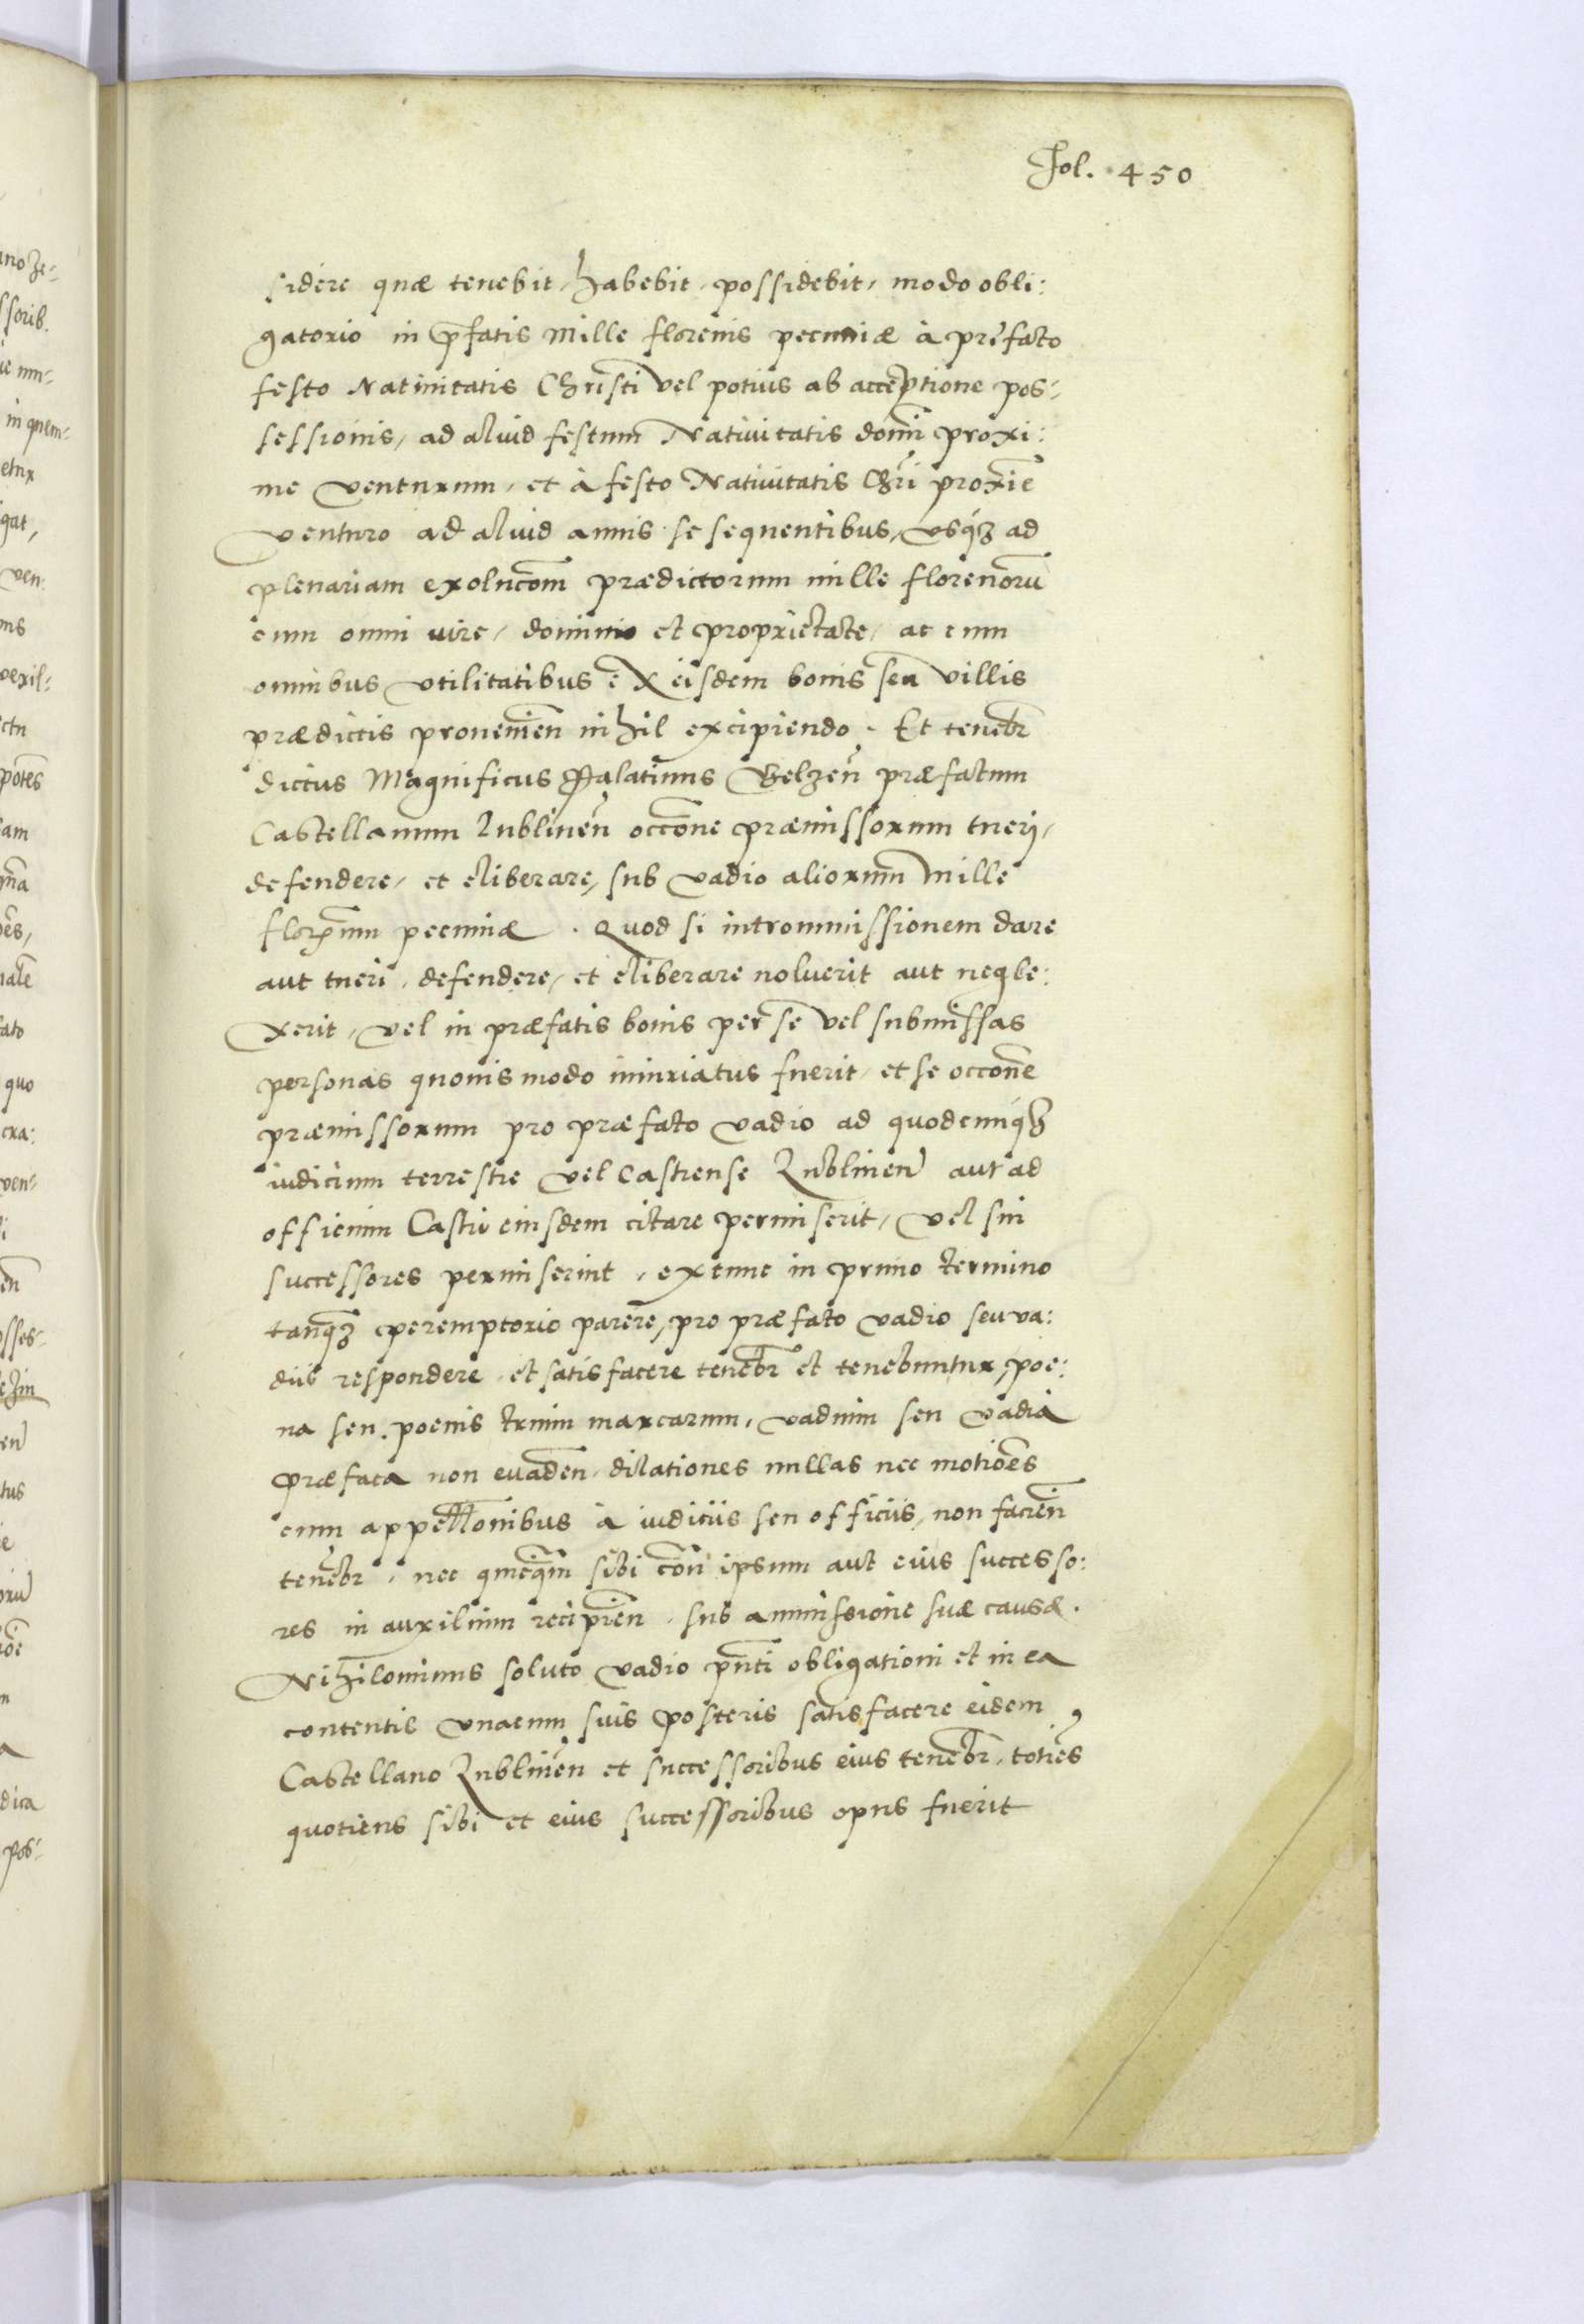 Fol. 450
sidere quæ tenebit, habebit, possidebit, modo obli:
gatorio in p̄fatis Mille florenis pecuniæ à præfato
festo Natiuitatis Christi vel potius ab acceptione pos-
sessionis, ad aliud festum Natiuitatis domī proxi:
me venturum, et à festo Natiuitatis Chrī proxīe
venturo ad aliud annis se sequentibus, vsq́ꝫ ad
plenariam exolucōm prædictorum mille florenorū
cum omni iure, dominio et proprietate, ac cum
omnibus vtilitatibus ex eisdem bonis seu villis
prædictis prouenien̄ nihil excipiendo. Et tenebr̄
dictus Magnificus Palatinus Belzen̄ præfatum
Castellanum Lublinen̄ occōne præmissorum tueri,
defendere, et eliberare, sub vadio aliorum mille
floren̄um pecuniæ. Quod si intromissionem dare
aut tueri, defendere, et eliberare noluerit aut negle:
xerit, vel in præfatis bonis per se vel submissas
personas quouismodo iniuriatus fuerit, et se occōne
præmissorum pro præfato vadio ad quodcunq́ꝫ
iudicium terrestre vel Castrense Lublinen̄ aut ad
officium Castri eiusdem citare permiserit, vel sui
successores permiserint, extunc in primo termino
tanq̄ꝫ peremptorio parere, pro præfato vadio seu va:
diis respondere et satisfacere tenebr̄ et tenebuntur, poe:
na seu poenis trium marcarum, vadium seu vadia
præfata non euaden̄, dilationes nullas nec motiōes
cum appellōnibus à iudiciis seu officiis, non facien̄
tenebr̄, nec quicq̄m sibi cōn ipsum aut eius successo:
res in auxilium recipien̄, sub amissione suæ causæ.
Nihilominus soluto vadio pn̄ti obligationi et in ea
contentis vnacum suis posteris satisfacere eidem
Castellano Lublinen̄ et successoribus eius tenebr̄, totiēs
quotiens sibi et eius successoribus opus fuerit